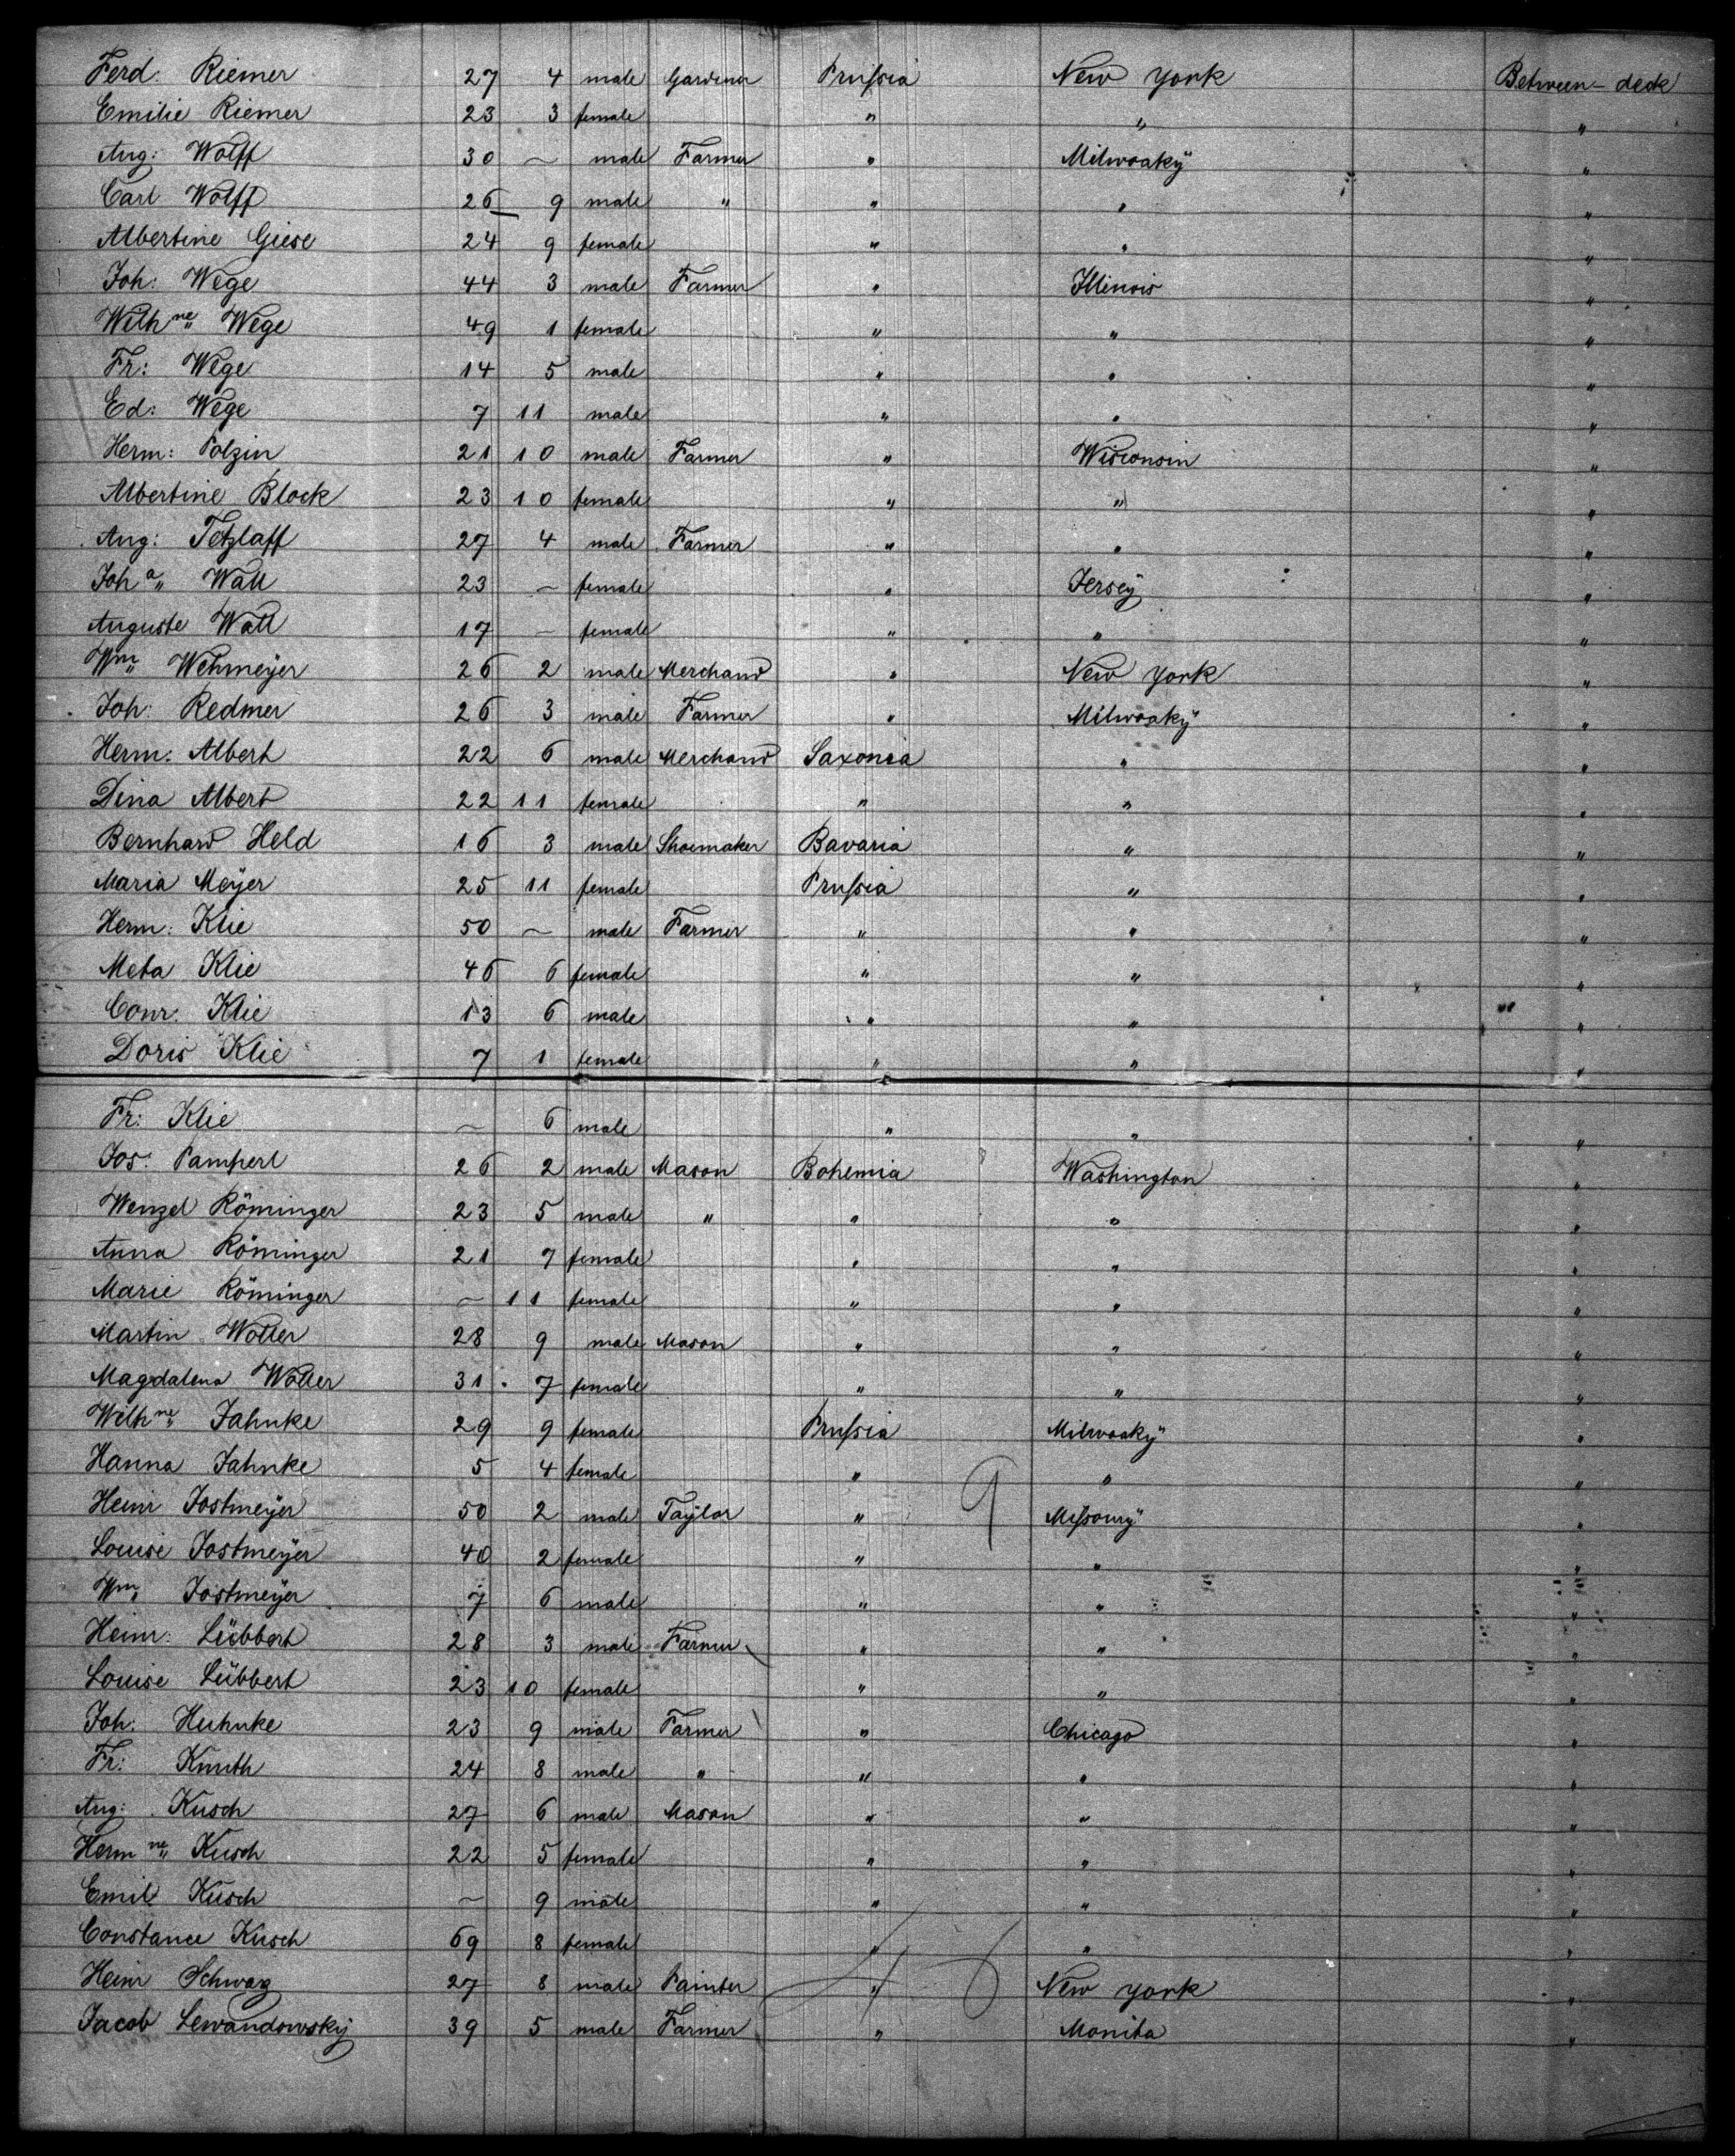 Ferd: Riemer 27 4 male Gardener Prussia New York Between-deck
Emilie Riemer 23 3 female " " "
Aug: Wolff 30 ~ male Farmer " Milwoaky "
Carl Wolff 26 9 male " " " "
Albertine Giese 24 9 female " " "
Joh: Wege 44 3 male Farmer " Illinois "
Wilhne" Wege 49 1 female " " "
Fr: Wege 14 5 male " " "
Ed: Wege 7 11 male " " "
Herm: Polzin 21 10 male Farmer " Wisconsin "
Albertine Block 23 10 female " " "
Aug: Tetzlaff 27 4 male Farmer " " "
Joha" Wall 23 ~ female " Jersey "
Auguste Wall 17 ~ female " " "
Wm" Wehmeyer 26 2 male Merchand " New York "
Joh: Redmer 26 3 male Farmer " Milwoaky "
Herm: Albert 22 6 male Merchand Saxonia " "
Dina Albert 22 11 female " " "
Bernhard Held 16 3 male Shoemaker Bavaria " "
Maria Meyer 25 11 female Prussia " "
Herm: Klie 50 ~ male Farmer " " "
Meta Klie 46 6 female " " "
Conr: Klie 13 6 male " " "
Doris Klie 7 1 female " " "
Fr: Klie ~ 6 male " " "
Jos: Pamperl 26 2 male Mason Bohemia Washington "
Wenzel Röminger 23 5 male " " " "
Anna Röminger 21 7 female " " "
Marie Röminger ~ 11 female " " "
Martin Woller 28 9 male Mason " " "
Magdalena Woller 31 7 female " " "
Wilhne" Jahnke 29 9 female Prussia Milwoaky "
Hanna Jahnke 5 4 female " " "
Heinr Jostmeyer 50 2 male Taylor " Missoury "
Louise Jostmeyer 40 2 female " " "
Wm" Jostmeyer 7 6 male " " "
Heinr: Lübbert 28 3 male Farmer " " "
Louise Lübbert 23 10 female " " "
Joh: Huhnke 23 9 male Farmer " Chicago "
Fr: Knuth 24 8 male " " " "
Aug: Kusch 27 6 male Mason " " "
Hermne" Kusch 22 5 female " " "
Emil Kusch ~ 9 male " " "
Constance Kusch 69 8 female " " "
Heinr Schwarz 27 8 male Painter " New York "
Jacob Lewandowsky 39 5 male Farmer " Monita "